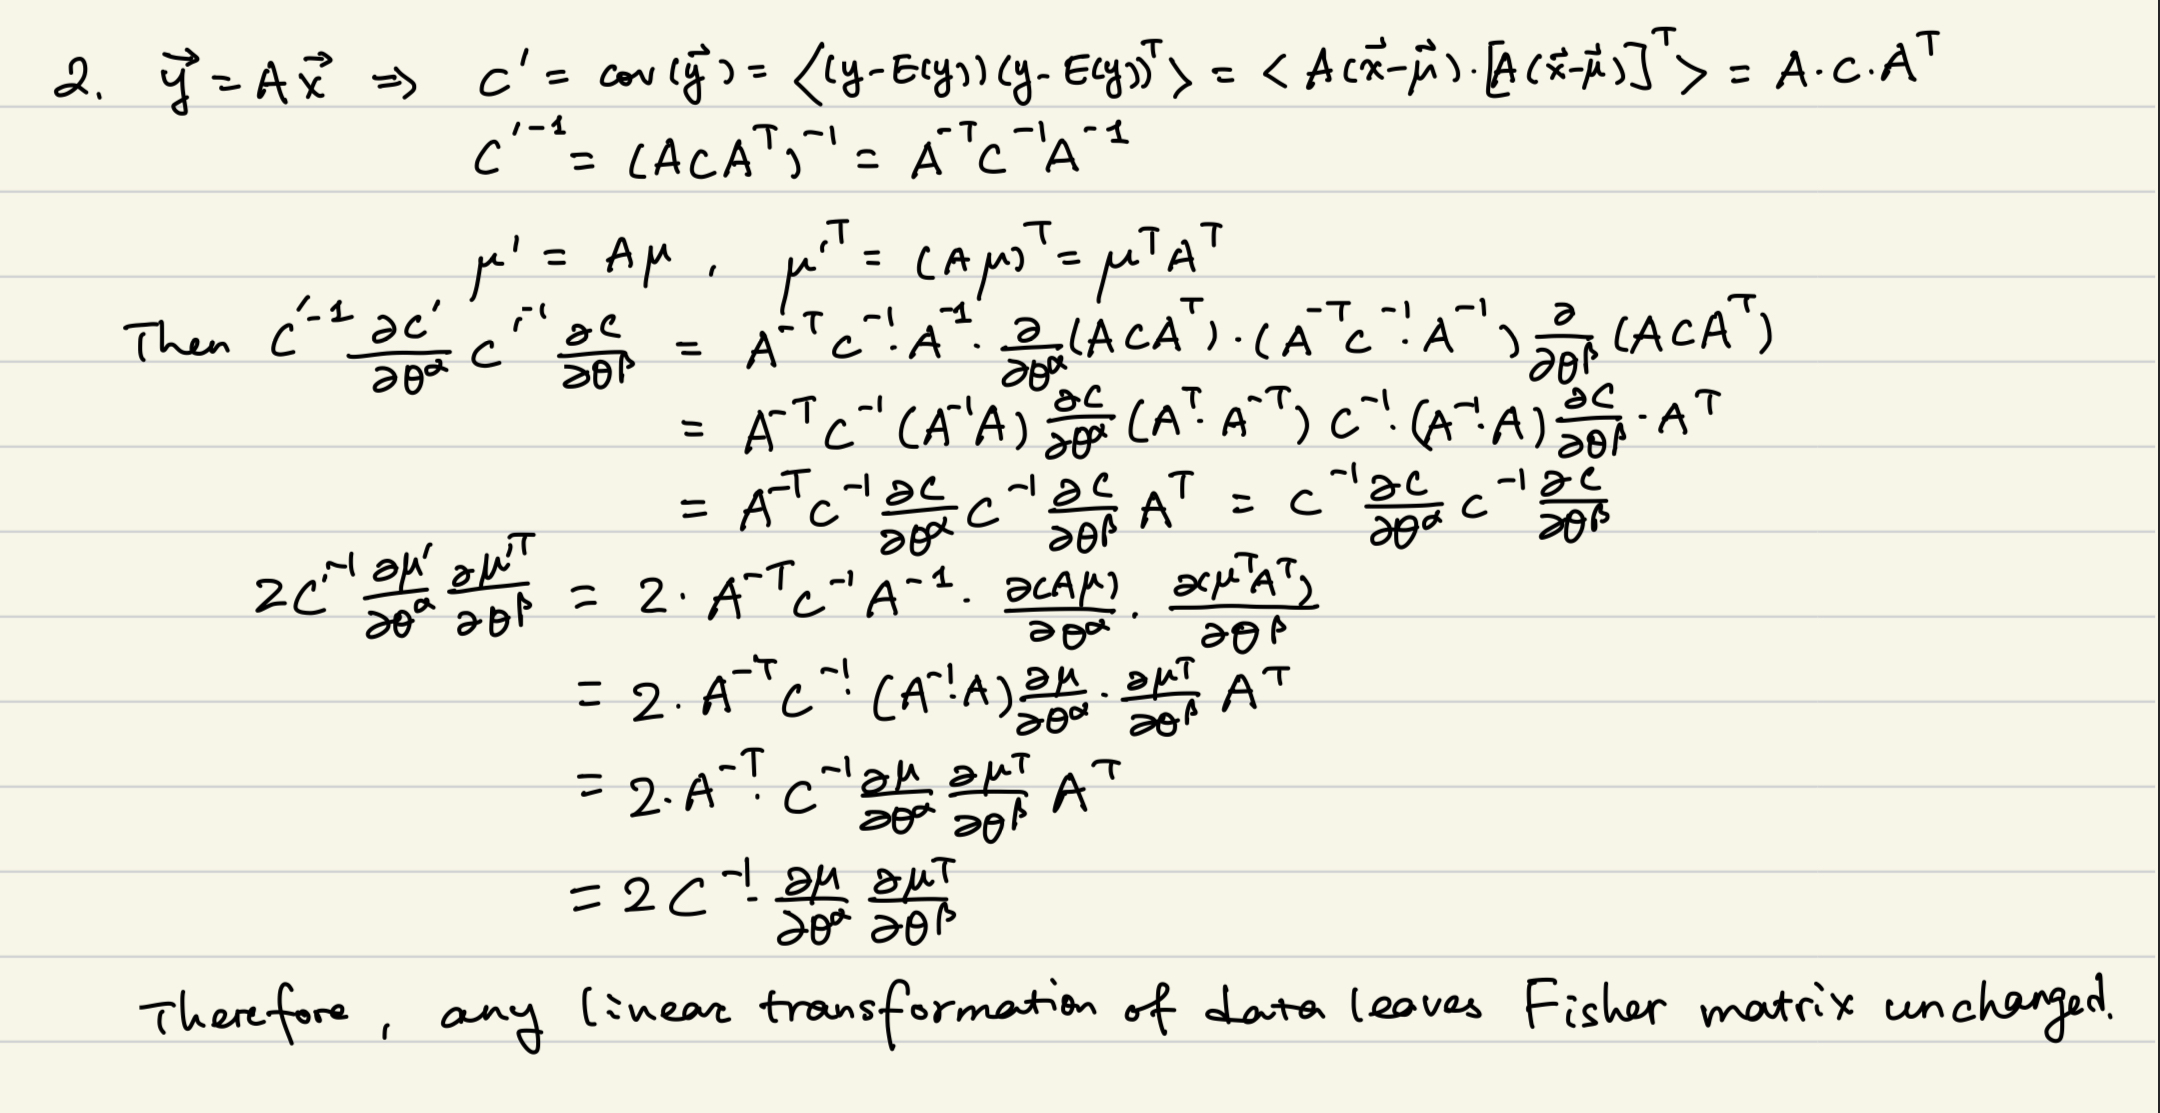 2. \vec{y} = A\vec{x} ⇒ C' = cov(\vec{y}) = ⟨(y-E(y))(y-E(y))^T⟩ = <A(\vec{x}-\vec{μ})·[A(\vec{x}-\vec{μ})]^T> = A·C·A^T
C'^{-1} = (ACA^T)^{-1} = A^{-T}C^{-1}A^{-1}
μ' = Aμ, μ'^T = (Aμ)^T = μ^TA^T
Then C'^{-1} \frac{∂C'}{∂θ^α} C'^{-1} \frac{∂C}{∂θ^β} = A^{-T}C^{-1}·A^{-1}·\frac{∂}{∂θ^α}(ACA^T)·(A^{-T}C^{-1}·A^{-1})\frac{∂}{∂θ^β}(ACA^T)
= A^{-T}C^{-1}(A^{-1}A)\frac{∂C}{∂θ^α}(A^T·A^{-T})C^{-1}·(A^{-1}·A)\frac{∂C}{∂θ^β}·A^T
= A^{-T}C^{-1}\frac{∂C}{∂θ^α}C^{-1}\frac{∂C}{∂θ^β}A^T = C^{-1}\frac{∂C}{∂θ^α}C^{-1}\frac{∂C}{∂θ^β}
2C'^{-1}\frac{∂μ'}{∂θ^α}\frac{∂μ'^T}{∂θ^β} = 2·A^{-T}C^{-1}A^{-1}·\frac{∂(Aμ)}{∂θ^α}·\frac{∂(μ^TA^T)}{∂θ^β}
= 2·A^{-T}C^{-1}·(A^{-1}·A)\frac{∂μ}{∂θ^α}·\frac{∂μ^T}{∂θ^β}A^T
= 2·A^{-T}·C^{-1}\frac{∂μ}{∂θ^α}\frac{∂μ^T}{∂θ^β}A^T
= 2C^{-1}·\frac{∂μ}{∂θ^α}\frac{∂μ^T}{∂θ^β}
Therefore, any linear transformation of data leaves Fisher matrix unchanged.